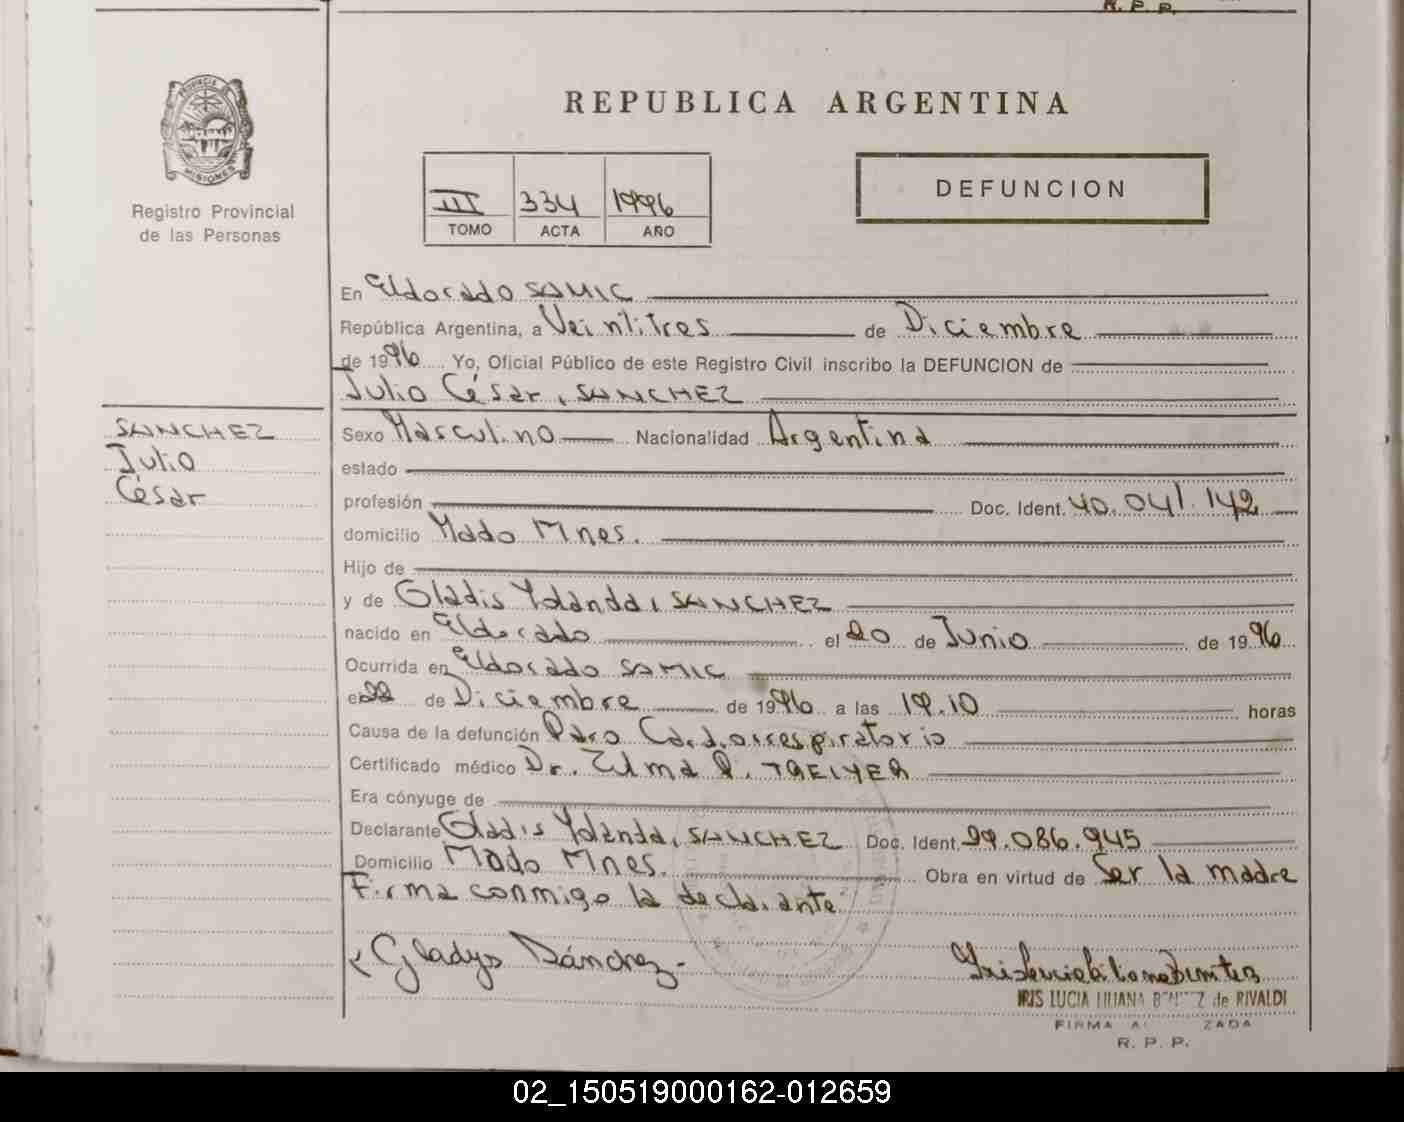 R. P. P.
PROVINCIA DE
MISIONES
Registro Provincial
de las Personas
REPUBLICA ARGENTINA
III 334 1996
TOMO ACTA AÑO
DEFUNCION
En Eldorado SAMIC
República Argentina, a Veintitres de Diciembre
de 1996 Yo, Oficial Público de este Registro Civil inscribo la DEFUNCION de
Julio César, SANCHEZ
SANCHEZ
Julio
César
Sexo Masculino Nacionalidad Argentina
estado
profesión Doc. Ident. 40.041.142
domicilio Mado Mnes.
Hijo de
y de Gladis Yolanda, SANCHEZ
nacido en Eldorado el 20 de Junio de 1996
Ocurrida en Eldorado SAMIC
el 22 de Diciembre de 1996 a las 19.10 horas
Causa de la defunción Paro Cardiorrespiratorio
Certificado médico Dr. Zulma R.
Era cónyuge de
Declarante Gladis Yolanda, SANCHEZ Doc. Ident. 29.086.945
Domicilio Mado Mnes. Obra en virtud de Ser la madre
Firma conmigo la declarante
Gladys Sánchez
IRIS LUCIA LILIANA BENITEZ de RIVALDI
FIRMA AUTORIZADA
R. P. P.
02_150519000162-012659